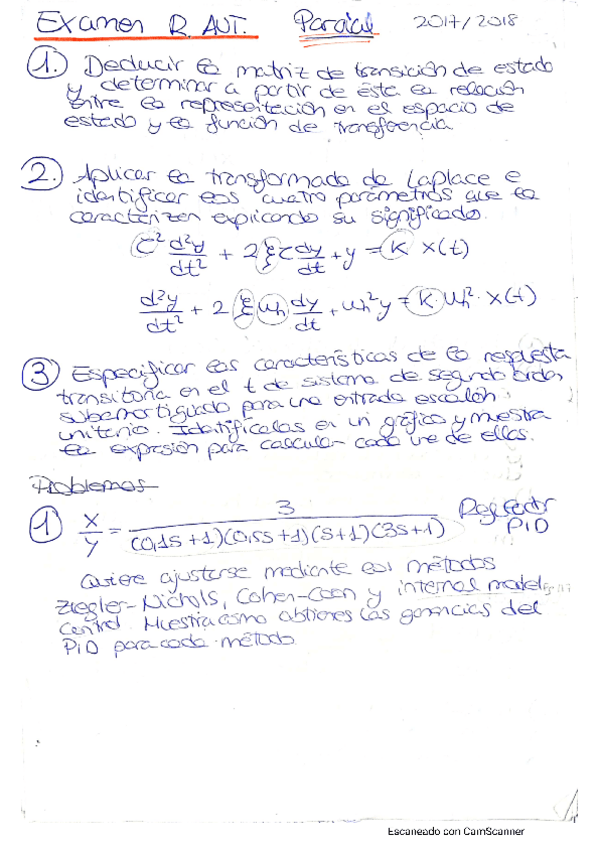 Examen R. AUT. Parcial 2017/2018
1. Deducir la matriz de transición de estado
y determinar a partir de ésta la relación
entre la representación en el espacio de
estado y la función de transferencia.
2. Aplicar la transformada de Laplace e
identificar los cuatro parámetros que la
caracterizan explicando su significado.
τ² d²y/dt² + 2ξτ dy/dt + y = K x(t)
d²y/dt² + 2 ξ ωn dy/dt + ωn² y = K · ωn² · x(t)
3 Especificar las características de la respuesta
transitoria en el t de sistema de segundo orden
subamortiguado para una entrada escalón
unitario. Identifícalas en un gráfico y muestra
la expresión para calcular cada una de ellas.
Problemas
1 x/y = 3/((0,1s+1)(0,5s+1)(s+1)(3s+1)) PID
Quiere ajustarse mediante los métodos
Ziegler-Nichols, Cohen-Coon y internal model
Control. Muestra como obtienes las ganancias del
PID para cada método
Escaneado con CamScanner